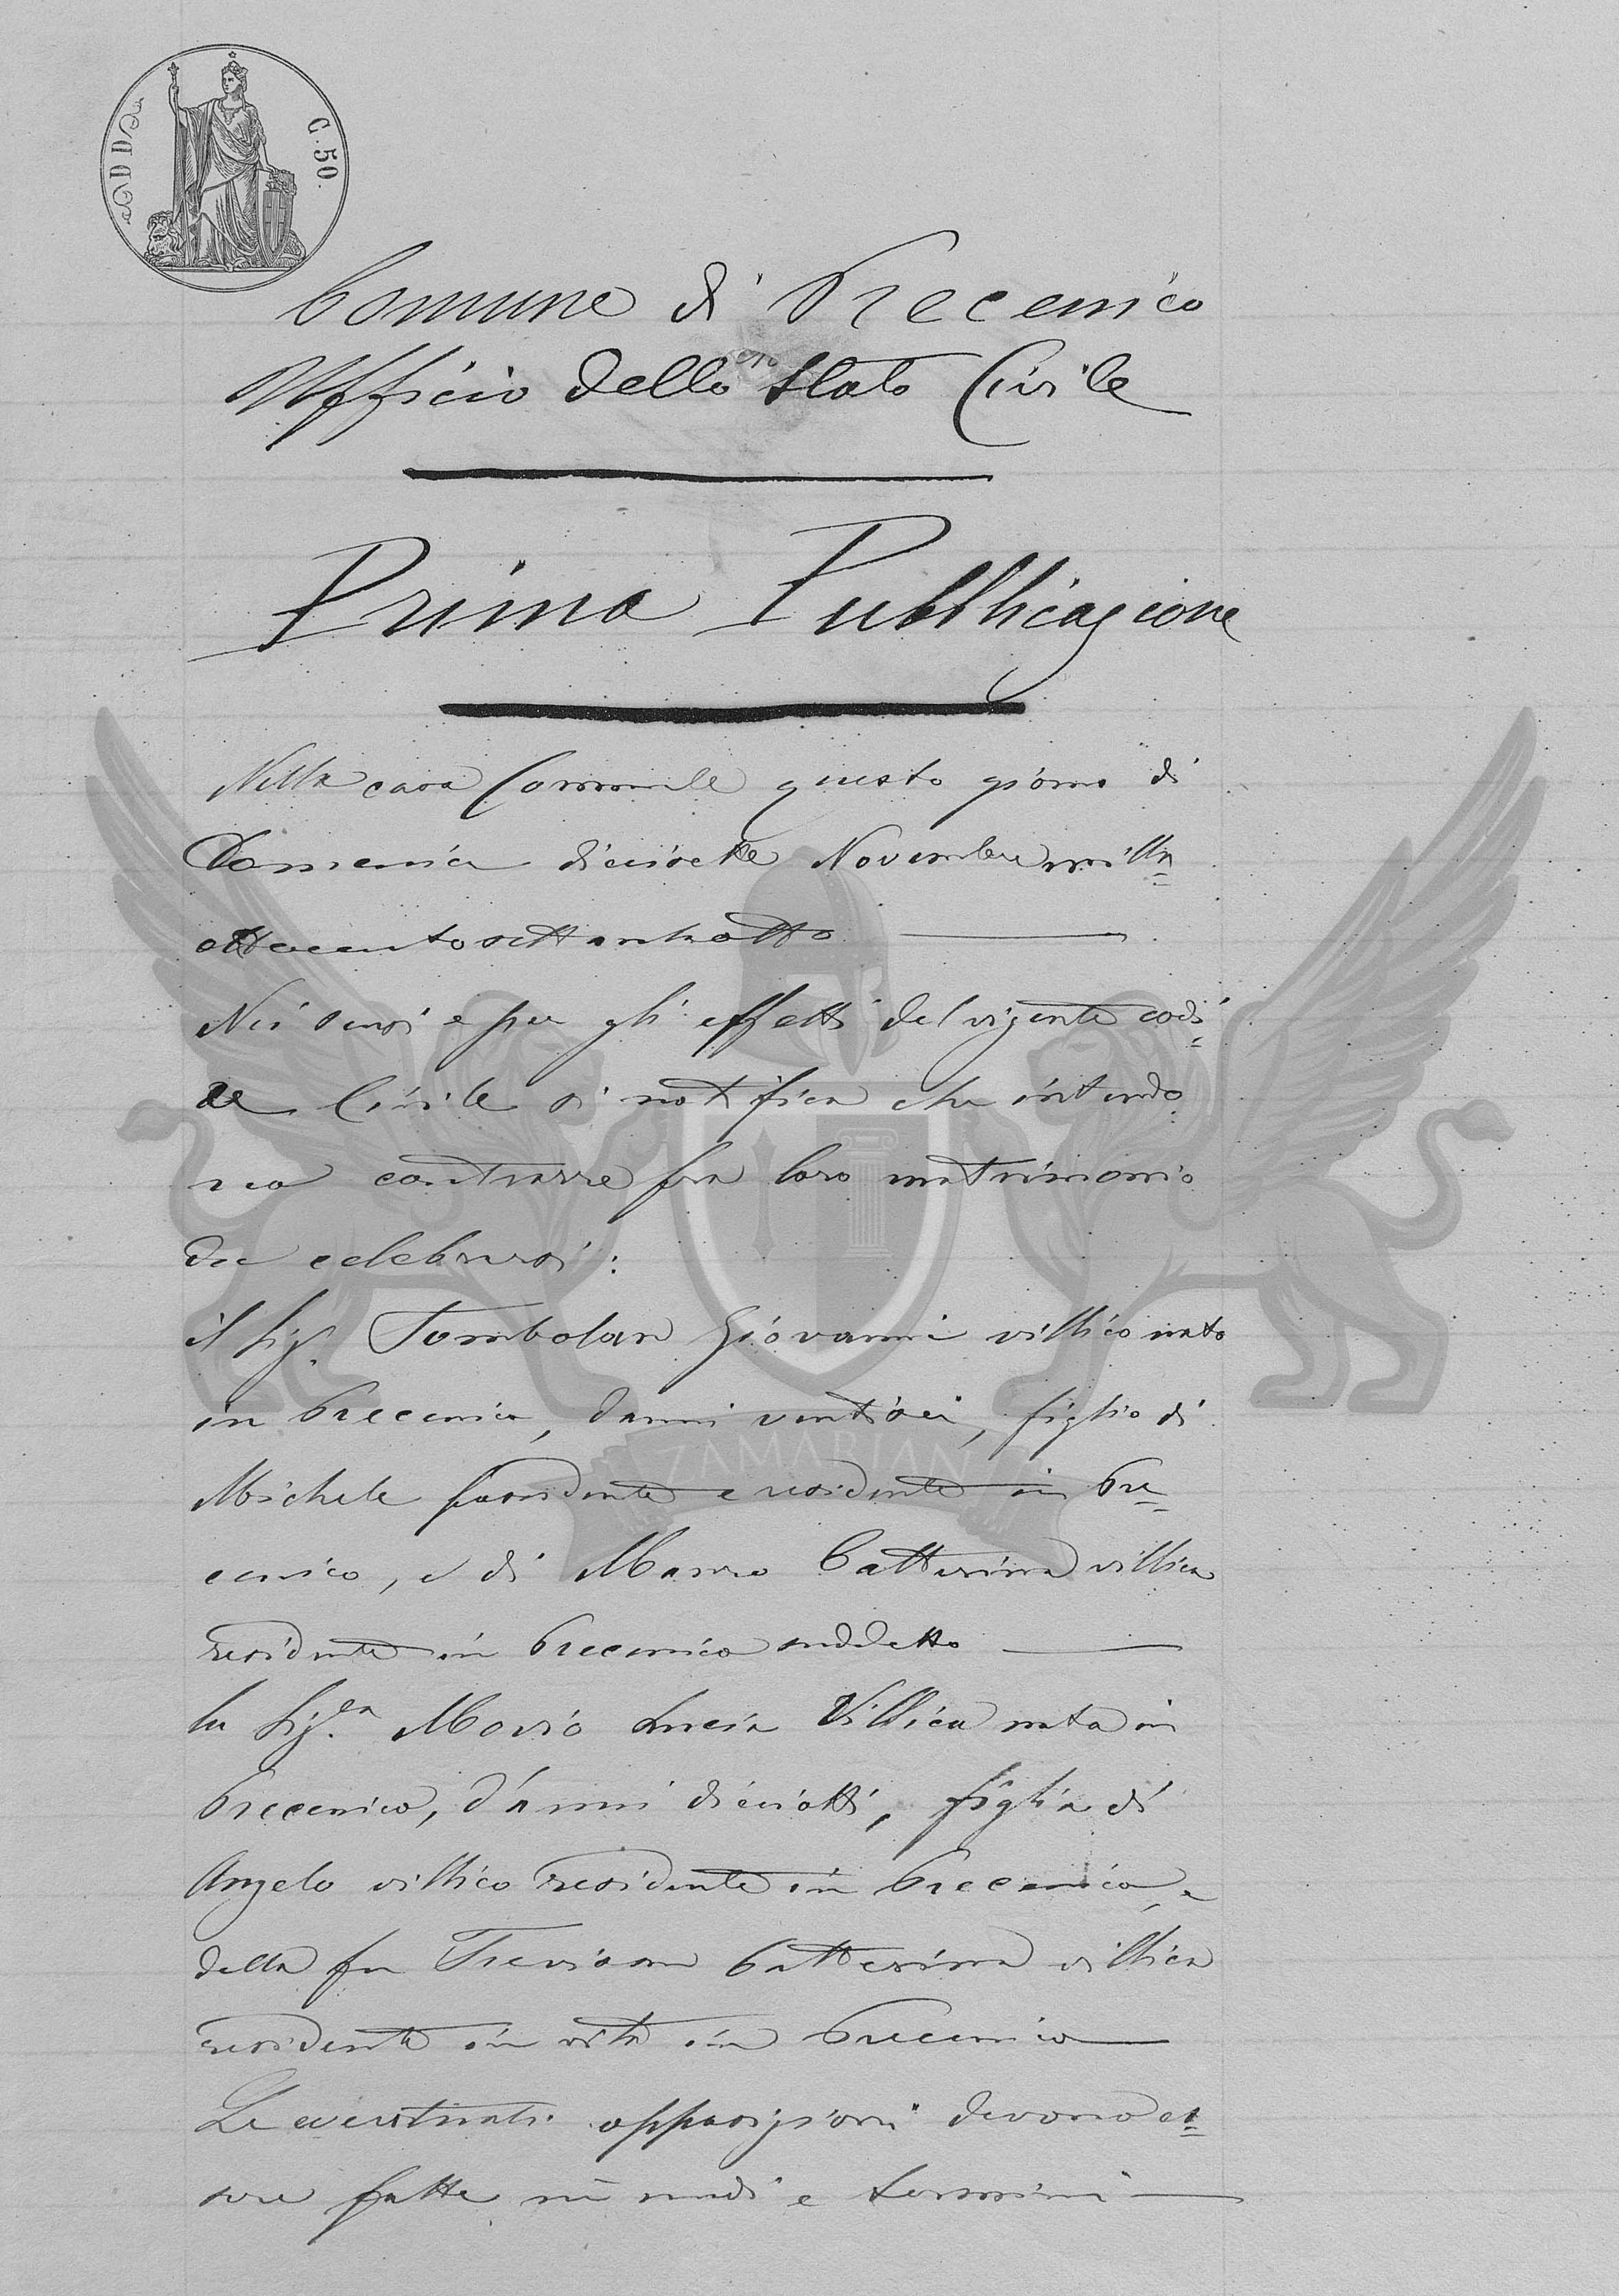 D D
C. 50.
Comune di Precenico
Ufficio dello Stato Civile
Prima Pubblicazione
Nella casa Comunale questo giorno di
Domenica diciisette Novembre mille=
ottocentosettantaotto
Nei sensi e per gli effetti del vigente codi=
ce Civile si notifica che intendo
no contrarre fra loro matrimonio
da celebrarsi:
il Sig. Tombolan Giovanni villico nato
in Precenico, d'anni ventisei, figlio di
Michele possidente e residente in Pre=
cenico, e di Mauro Catterina villica
residente in Precenico suddetto
la Sig.ra Movio Lucia Villica nata in
Precenico, d'anni diciotti, figlia di
Angelo villico residente in Precenico, e
della fu Trevisan Catterina villica
residente in vita in Precenico
Le eventuali opposizioni devono es=
sere fatte nei modi e termini
ZAMARIAN